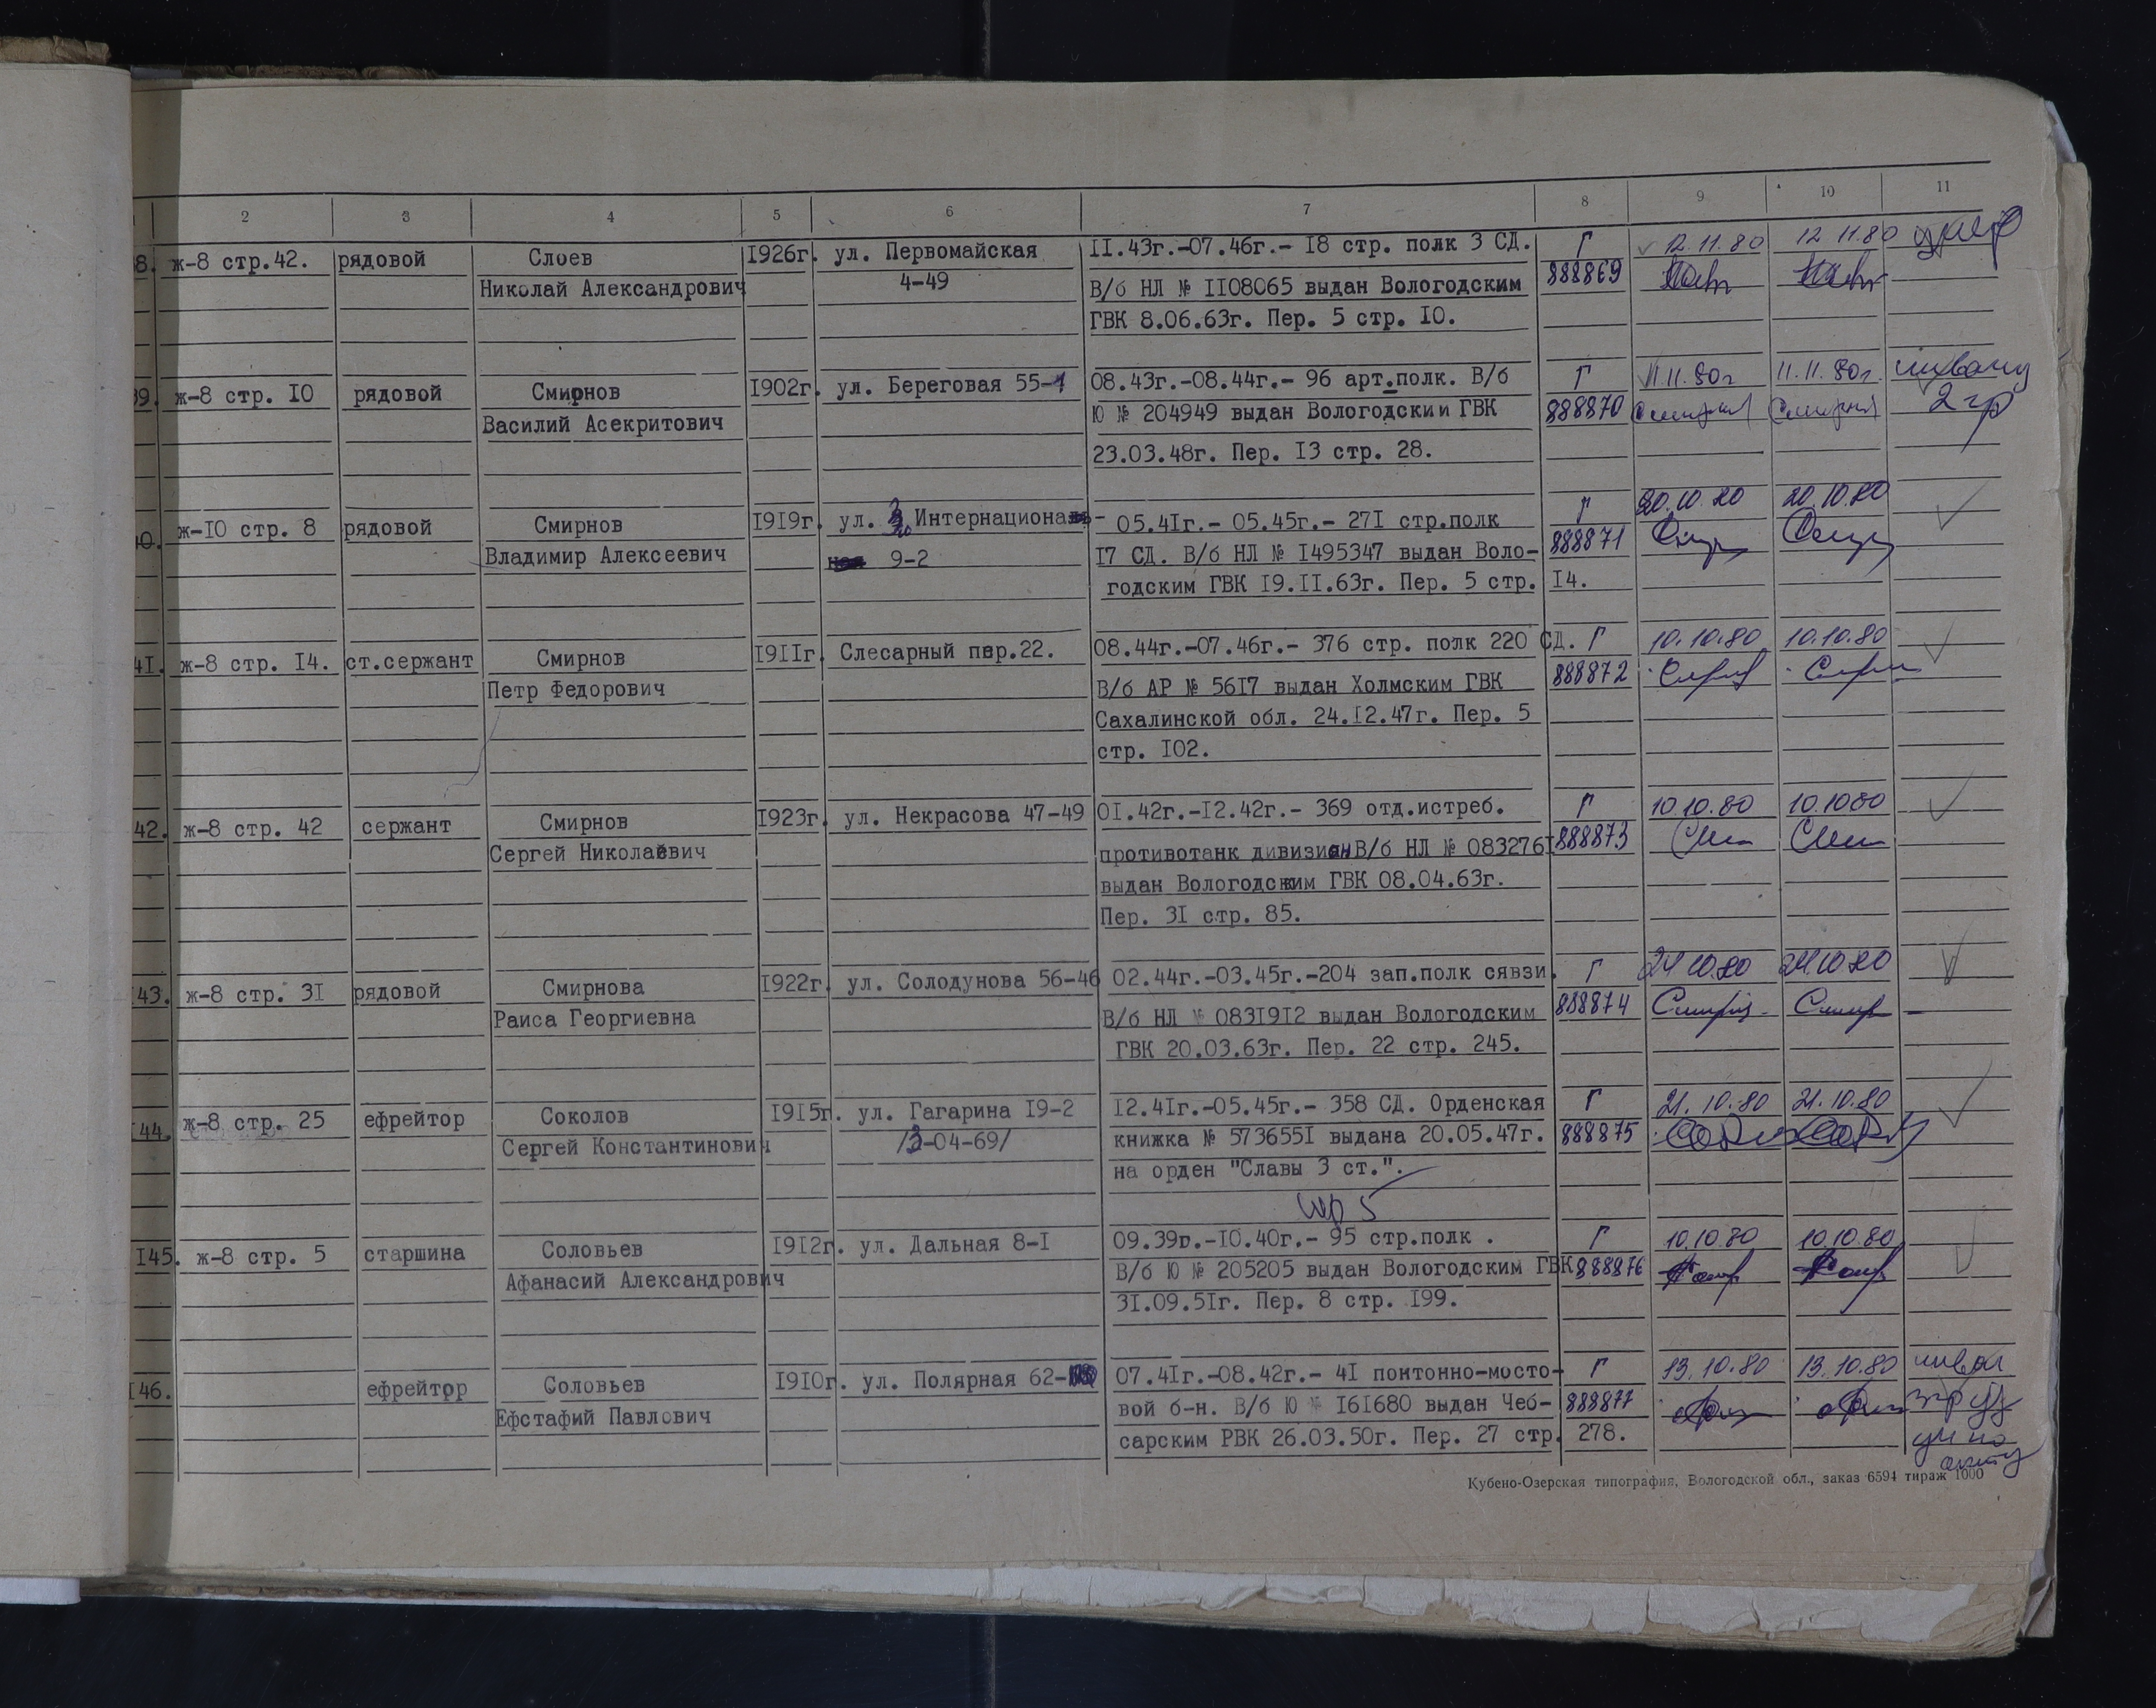 2 3 4 5 6 7 8 9 10 11
8. ж-8 стр.42. рядовой Слоев 1926г. ул. Первомайская II.43г.-07.46г.- I8 стр. полк 3 СД. Г 12.11.80 12 11.80
Николай Александрович 4-49 В/б НЛ № II08065 выдан Вологодским 888869
ГВК 8.06.63г. Пер. 5 стр. I0.
39. ж-8 стр. I0 рядовой Смирнов I902г. ул. Береговая 55-1 08.43г.-08.44г.- 96 арт.полк. В/б Г 11.11.80г 11.11.80г.
Василий Асекритович Ю № 204949 выдан Вологодскии ГВК 888870 2 гр
23.03.48г. Пер. I3 стр. 28.
40. ж-I0 стр. 8 рядовой Смирнов I9I9г. ул. 3 Интернационал- 05.4Iг.- 05.45г.- 27I стр.полк Г 20.10.80 20.10.80
Владимир Алексеевич 9-2 I7 СД. В/б НЛ № I495347 выдан Воло- 888871
годским ГВК I9.II.63г. Пер. 5 стр. I4.
4I. ж-8 стр. I4. ст.сержант Смирнов I9IIг. Слесарный пер.22. 08.44г.-07.46г.- 376 стр. полк 220 СД. Г 10.10.80 10.10.80
Петр Федорович В/б АР № 56I7 выдан Холмским ГВК 888872
Сахалинской обл. 24.I2.47г. Пер. 5
стр. I02.
42. ж-8 стр. 42 сержант Смирнов I923г. ул. Некрасова 47-49 0I.42г.-I2.42г.- 369 отд.истреб. Г 10.10.80 10.10 80
Сергей Николаевич противотанк дивизион В/б НЛ № 083276I 888873
выдан Вологодским ГВК 08.04.63г.
Пер. 3I стр. 85.
43. ж-8 стр. 3I рядовой Смирнова I922г. ул. Солодунова 56-46 02.44г.-03.45г.-204 зап.полк сявзи. Г 24 10.80 24 10 80
Раиса Георгиевна В/б НЛ № 083I9I2 выдан Вологодским 888874
ГВК 20.03.63г. Пер. 22 стр. 245.
I44. ж-8 стр. 25 ефрейтор Соколов I9I5г. ул. Гагарина I9-2 I2.4Iг.-05.45г.- 358 СД. Орденская Г 21.10.80 21.10.80
Сергей Константинович /3-04-69/ книжка № 573655I выдана 20.05.47г. 888875
на орден "Славы 3 ст.".
I45. ж-8 стр. 5 старшина Соловьев I9I2г. ул. Дальная 8-I 09.39г.-I0.40г.- 95 стр.полк . Г 10.10.80 10.10.80
Афанасий Александрович В/б Ю № 205205 выдан Вологодским ГВК 888876
3I.09.5Iг. Пер. 8 стр. I99.
I46. ефрейтор Соловьев I9I0г. ул. Полярная 62- 07.4Iг.-08.42г.- 4I понтонно-мосто- Г 13.10.80 13.10.80
Ефстафий Павлович вой б-н. В/б Ю № I6I680 выдан Чеб- 888877
сарским РВК 26.03.50г. Пер. 27 стр. 278.
Кубено-Озерская типография, Вологодской обл., заказ 6594 тираж 1000